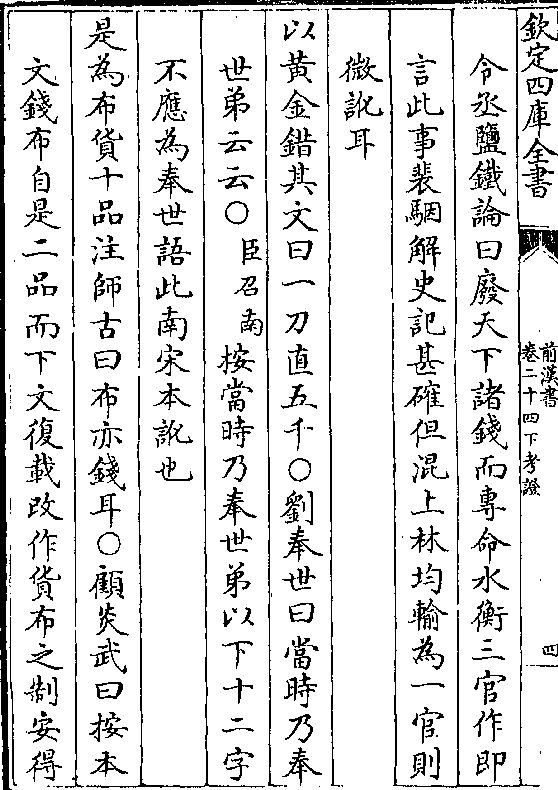 欽定四庫全書
前漢書
卷二十四下考證
四
令丞鹽鐵論曰廢天下諸錢而專命水衡三官作即
言此事裴駰解史記甚確但混上林均輸為一官則
微訛耳
以黄金錯其文曰一刀直五千○劉奉世曰當時乃奉
世弟云云○臣召南按當時乃奉世弟以下十二字
不應為奉世語此南宋本訛也
是為布貨十品注師古曰布亦錢耳○顧炎武曰按本
文錢布自是二品而下文復載改作貨布之制安得